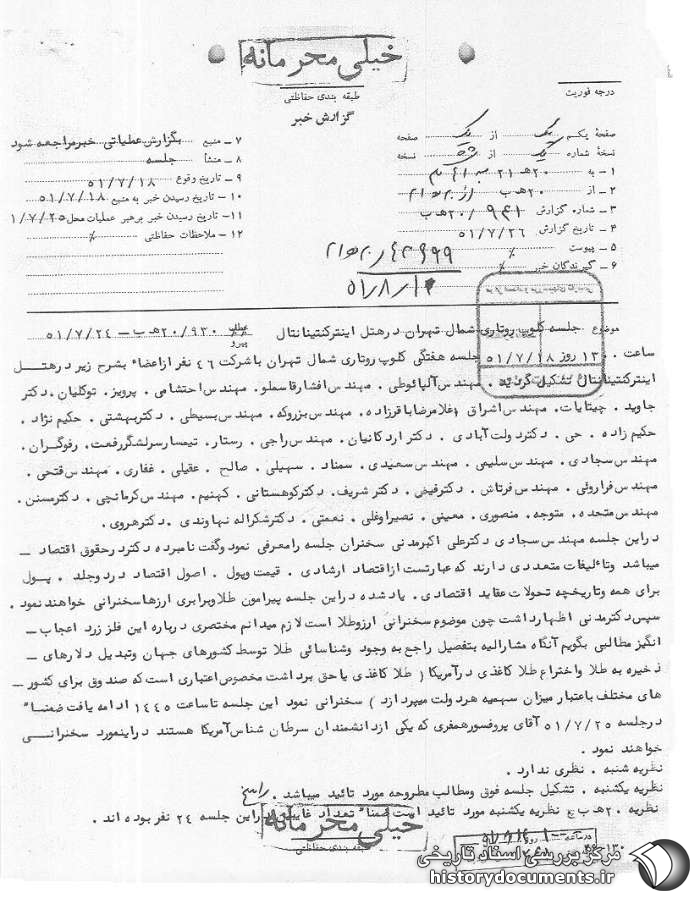 خیلی محرمانه
طبقه بندی حفاظتی
گزارش خبر
درجه فوریت
صفحهٔ یکم یک از یک صفحه
نسخهٔ شماره یک از نسخه
۱ – به ۲۰هـ ۲۱
۲ – از ۲۰هـ ب
۳ – شماره گزارش ۲۰/۹۴۱هـ ب
۴ – تاریخ گزارش ۵۱/۷/۲۶
۵ – پیوست ٪
۶ – گیرندگان خبر ٪
۷ – منبع بگزارش عطیاتی خبرمراجعه شود
۸ – منشأ جلسه
۹ – تاریخ وقوع ۵۱/۷/۱۸
۱۰ – تاریخ رسیدن خبر به منبع ۵۱/۷/۱۸
۱۱ – تاریخ رسیدن خبر برهبر عملیات محل ۱/۷/۲۵
۱۲ – ملاحظات حفاظتی ٪
۵۱/۸/۱
موضوع جلسه کلوپ روتاری شمال تهران درهتل اینترکنتیناتال عطف پیرو ۲۰/۹۳۰هـ ب – ۵۱/۷/۲۴
ساعت ۱۳۰۰ روز ۵۱/۷/۱۸ جلسه هفتگی کلوپ روتاری شمال تهران باشرکت ۴۶ نفر ازاعضاء بشرح زیر درهتل
اینترکنتیناتال تشکیل گردید . مهندس آلپائوطی . مهندس افشارقاسملو . مهندس احتشامی . پرویز . توکلیان . دکتر
جاوید . چیتایات . مهندس اشراق . غلامرضا باقرزاده . مهندس بزروکه . مهندس بسیطی . دکتربهشتی . حکیم نژاد .
حکیم زاده . حی . دکتردولت آبادی . دکتر اردکانیان . مهندس راجی . رستار . تیمسارسرلشگررفعت . رفوگران .
مهندس سجادی . مهندس سلیمی . مهندس سعیدی . سمناد . سهیلی . صالح . عقیلی . غفاری . مهندس فتحی .
مهندس فراروئی . مهندس فرتاش . دکترفیض . دکتر شریف . دکترکوهستانی . کهنیم . مهندس کرمانچی . دکترمسنن .
مهندس متحده . متوجه . منصوری . معینی . نصیراوغلی . نعمتی . دکترشکراله نهاوندی . دکترهروی .
دراین جلسه مهندس سجادی دکترطی اکبرمدنی سخنران جلسه رامعرفی نمود وگفت نامبرده دکتردرحقوق اقتصاد –
میباشد وتالیفات متعددی دارند که عبارتست ازاقتصاد ارشادی . قیمت وپول . اصول اقتصاد دردوجلد . پول
برای همه وتاریخچه تحولات عقاید اقتصادی . یادشده دراین جلسه پیرامون طلاوبرابری ارزها سخنرانی خواهند نمود .
سپس دکترمدنی اظهارداشت چون موضوع سخنرانی ارزوطلا است لازم میدانم مختصری درباره این فلز زرد اعجاب –
انگیز مطالبی بگویم آنگاه مشارالیه بتفصیل راجع به وجود وشناسائی طلا توسط کشورهای جهان وتبدیل دلارهای –
ذخیره به طلا واختراع طلا کاغذی درآمریکا ( طلا کاغذی یاحق برداشت مخصوص اعتباری است که صندوق برای کشور –
های مختلف باعتبار میزان سهمیه هردولت میپردازد ) سخنرانی نمود این جلسه تاساعت ۱۴۴۵ ادامه یافت ضمناً
درجلسه ۵۱/۷/۲۵ آقای پروفسورهمفری که یکی ازدانشمندان سرطان شناس آمریکا هستند دراینمورد سخنرانی
خواهند نمود .
نظریه شنبه . نظری ندارد .
نظریه یکشنبه . تشکیل جلسه فوق ومطالب مطروحه مورد تائید میباشد . راسخ
نظریه ۲۰هـ ب نظریه یکشنبه مورد تائید است ضمناً تعداد دراین جلسه ۲۴ نفر بوده اند .
خیلی محرمانه
طبقه بندی حفاظتی
مرکز بررسی اسناد تاریخی
historydocuments.ir